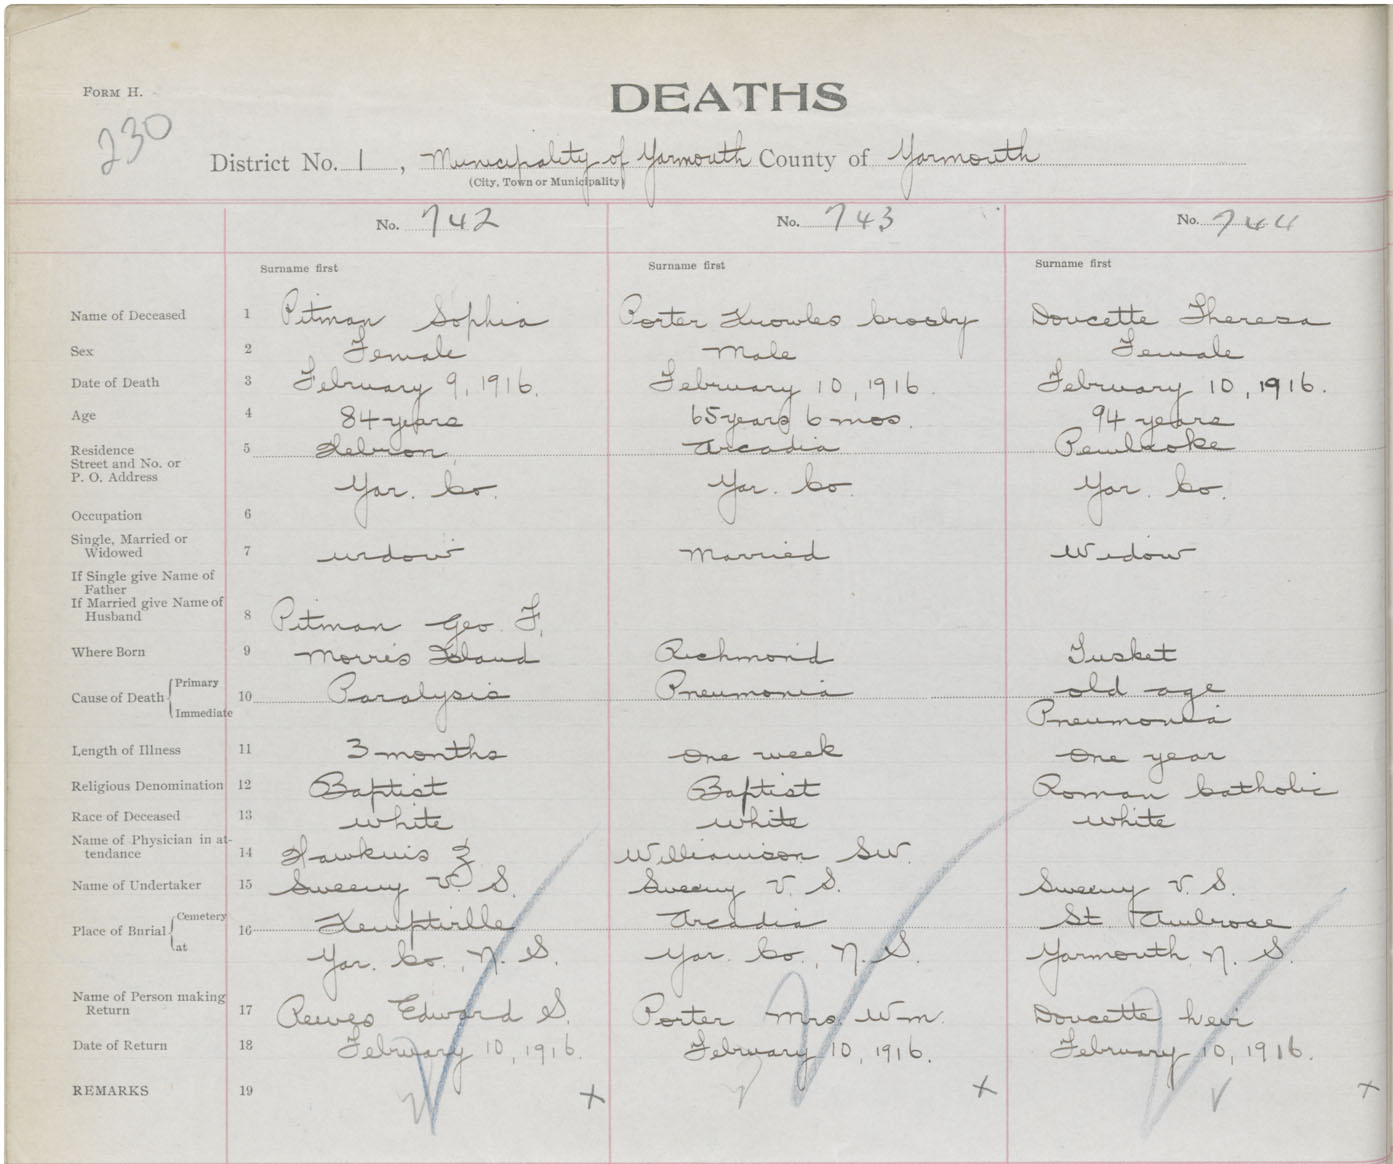 FORM H.
DEATHS
230
District No. 1, Municipality of Yarmouth County of Yarmouth
(City, Town or Municipality)
No. 742 No. 743 No. 744
Surname first Surname first Surname first
Name of Deceased 1 Pitman Sophia Porter Knowles Crosby Doucette Theresa
Sex 2 Female Male Female
Date of Death 3 February 9, 1916. February 10, 1916. February 10, 1916.
Age 4 84 years 65 years 6 mos. 94 years
Residence 5 Hebron Arcadia Pembroke
Street and No. or
P. O. Address Yar. Co. Yar. Co. Yar. Co.
Occupation 6
Single, Married or
Widowed 7 widow Married Widow
If Single give Name of
Father
If Married give Name of
Husband 8 Pitman Geo. F.
Where Born 9 Morris Island Richmond Tusket
Cause of Death { Primary 10 Paralysis Pneumonia old age
Immediate Pneumonia
Length of Illness 11 3 months One week One year
Religious Denomination 12 Baptist Baptist Roman Catholic
Race of Deceased 13 white white white
Name of Physician in at-
tendance 14 Hawkins Z. Williamson S W.
Name of Undertaker 15 Sweeny V. S. Sweeny V. S. Sweeny V. S.
Place of Burial { Cemetery 16 Kemptville Arcadia St. Ambrose
at Yar. Co., N. S. Yar. Co., N. S. Yarmouth N. S.
Name of Person making
Return 17 Reeves Edward S. Porter Mrs. Wm. Doucette heir
Date of Return 18 February 10, 1916. February 10, 1916. February 10, 1916.
REMARKS 19 x x x